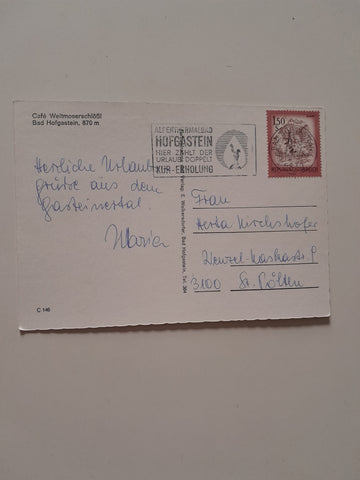 Café Weitmoserschlößl
Bad Hofgastein, 870 m
ALPENTHERMALBAD
HOFGASTEIN
HIER ZÄHLT DER
URLAUB DOPPELT
KUR-ERHOLUNG
1.50
REPUBLIK ÖSTERREICH
Herzliche Urlaubs
grüße aus dem
Gasteinertal.
Maria
Frau
Herta Kirchhofer
9
3100 St. Pölten
Bad Hofgastein, Tel. 384
C 146